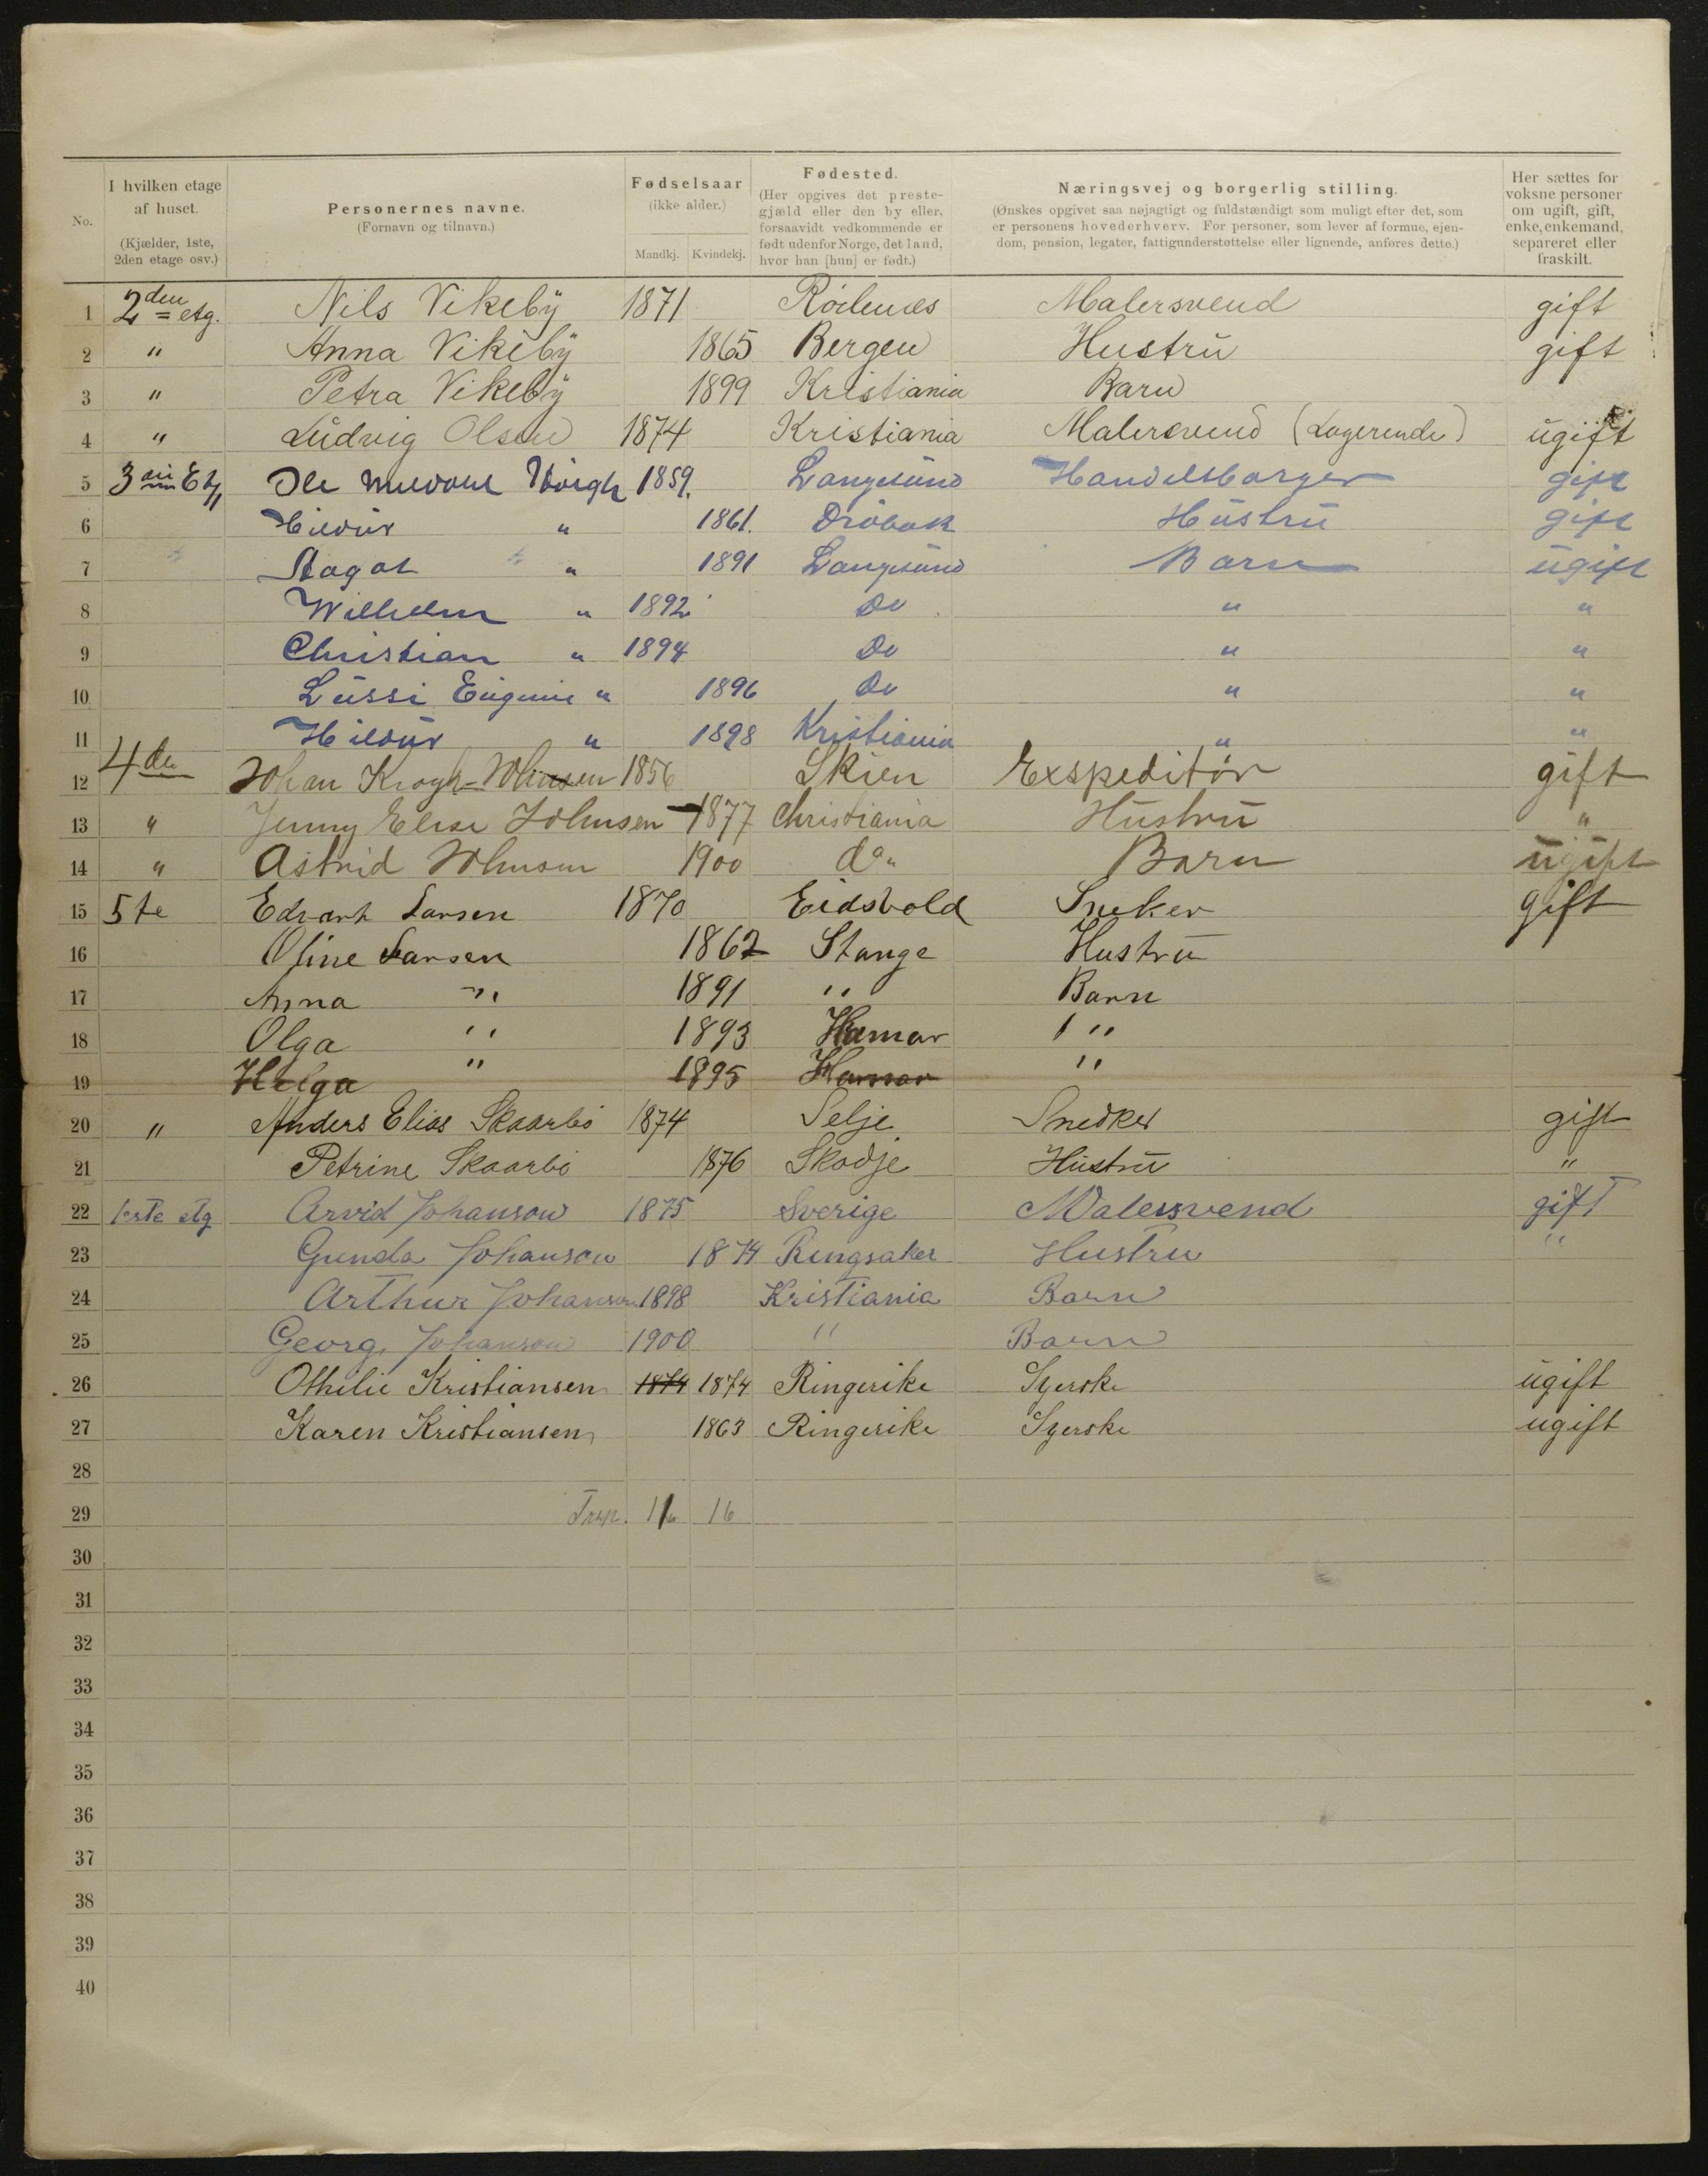 No.
I hvilken etage af huset.
(Kjælder, 1ste, 2den etage osv.)
Personernes navne.
(Fornavn og tilnavn.)
Fødselsaar
(ikke alder.)
Mandkj. Kvindekj.
Fødested.
(Her opgives det prestegjæld eller den by eller, forsaavidt vedkommende er født udenfor Norge, det land, hvor han [hun] er født.)
Næringsvej og borgerlig stilling.
(Ønskes opgivet saa nøjagtigt og fuldstændigt som muligt efter det, som er personens hovederhverv. For personer, som lever af formue, ejendom, pension, legater, fattigunderstøttelse eller lignende, anføres dette.)
Her sættes for voksne personer om ugift, gift, enke, enkemand, separeret eller fraskilt.
1 2den etg. Nils Vikeby 1871 Rödenæs Malersvend gift
2 " Anna Vikeby 1865 Bergen Hustru gift
3 " Petra Vikeby 1899 Kristiania Barn
4 " Ludvig Olsen 1874 Kristiania Malersvend (Logerende) ugift
5 Ole 1859. Langesund Handelsborger gift
6 Hildur " 1861. Dröbak Hustru gift
7 Aagot " 1891 Langesund Barn ugift
8 Wilhelm " 1892 Do " "
9 Christian " 1894 Do " "
10 Lussi Eugenie " 1896 Do " "
11 Hildur " 1898 Kristiania " "
12 4de Johan Krogh-Johnsen 1856 Skien Exspeditör gift
13 " Jenny Elise Johnsen 1877 Christiania Hustru "
14 " Astrid Johnsen 1900 do " Barn ugift
15 5te Edvart Larsen 1870 Eidsvold Sneker gift
16 Oline Larsen 1862 Stange Hustru
17 Anna " 1891 " Barn
18 Olga " 1893 Hamar "
19 Helga " 1895 Hamar "
20 " Anders Elias Skaarbö 1874 Selje Snedker gift
21 Petrine Skaarbö 1876 Skodje Hustru "
22 1ste etg Arvid Johanson 1875 Sverige Malersvend gift
23 Gunda Johanson 1874 Ringsaker Hustru "
24 Arthur Johanson 1898 Kristiania Barn
25 Georg Johanson 1900 " Barn
26 Othilie Kristiansen 1874 1874 Ringerike Syerske ugift
27 Karen Kristiansen 1863 Ringerike Syerske ugift
28
29 16
30
31
32
33
34
35
36
37
38
39
40